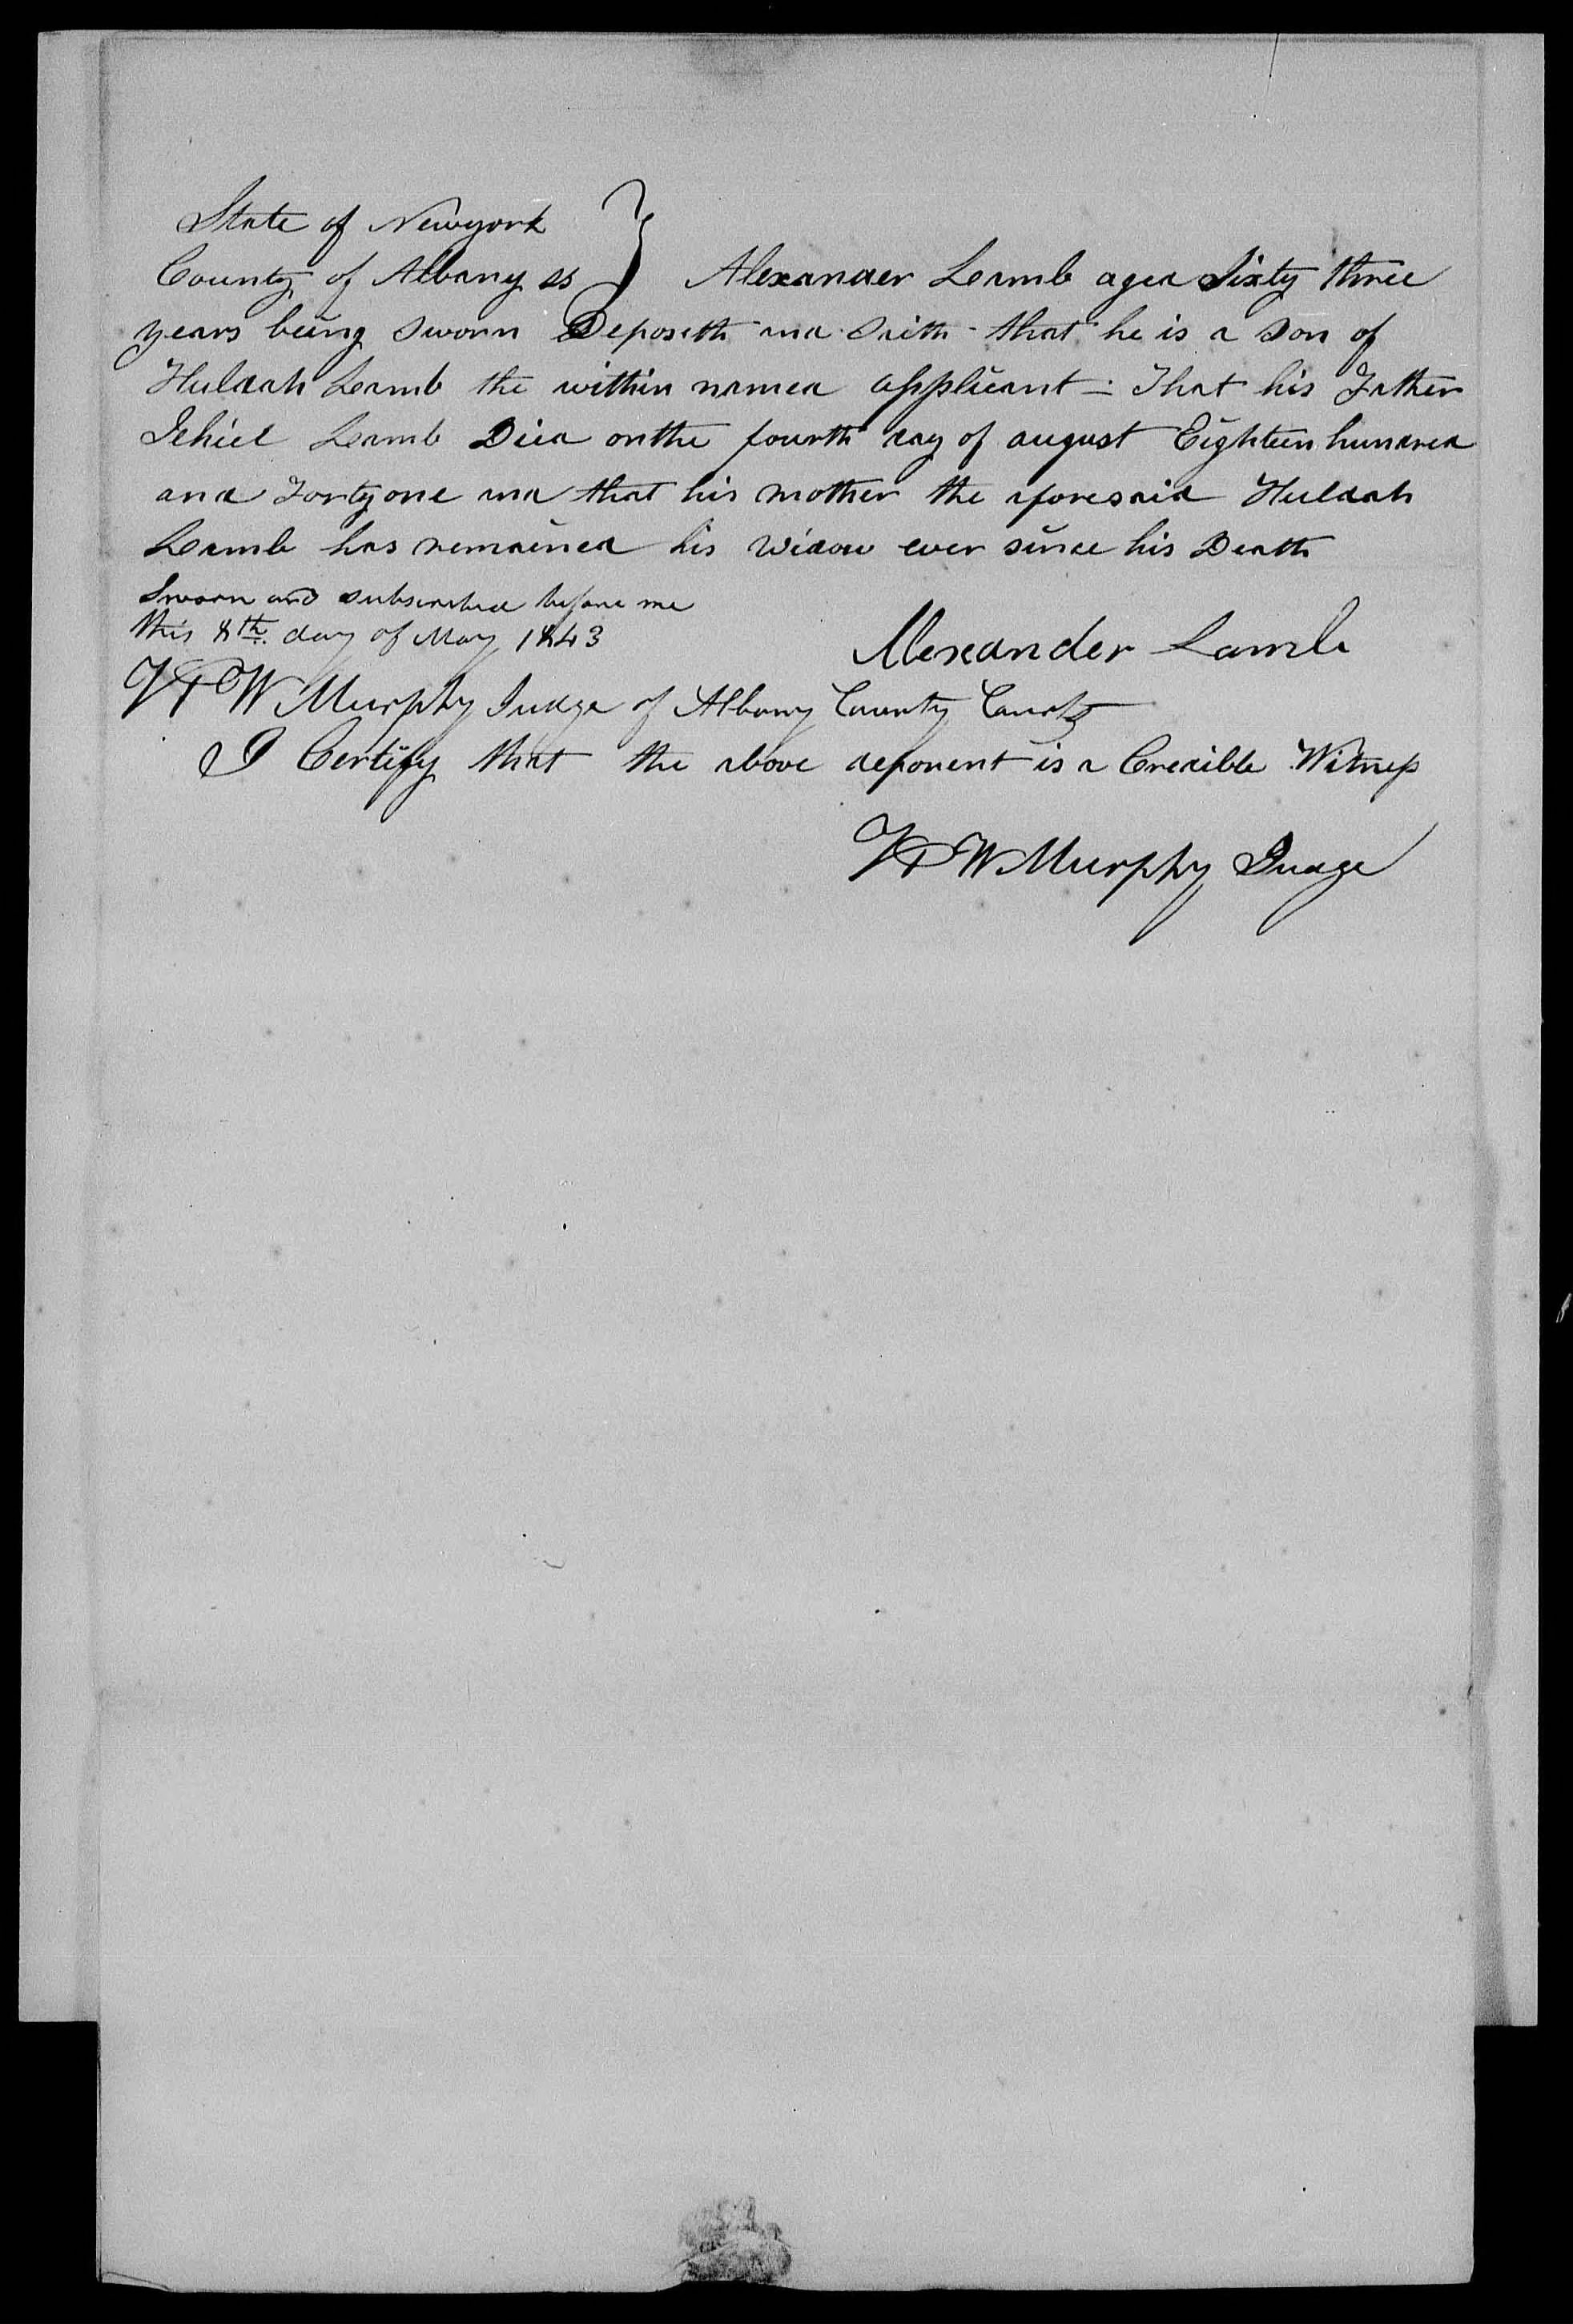 State of Newyork
County of Albany ss } Alexander Lamb aged Sixty three
years being sworn Deposeth and Saith - that he is a Son of
Huldah Lamb the within named applicant - That his Father
Jehiel Lamb Died on the fourth day of august Eighteen hundred
and Forty one and that his mother the aforesaid Huldah
Lamb has remained his Widow ever since his Death
Sworn and subscribed before me
this 8th day of May 1843
Alexander Lamb
W Murphy Judge of Albany County Courts
I Certify that the above deponent is a Credible Witness
W Murphy Judge